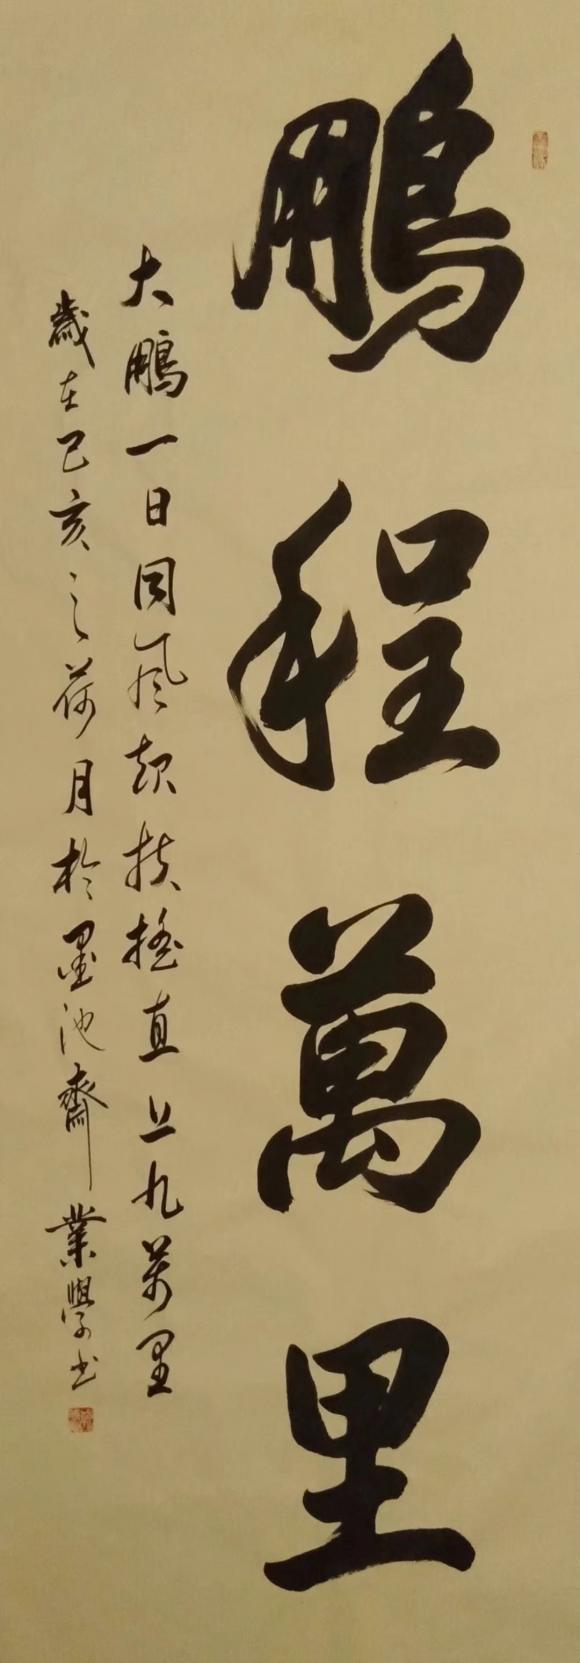 鵬程萬里
大鵬一日同風起扶搖直上九萬里
歲在己亥之荷月於墨池齋業學书